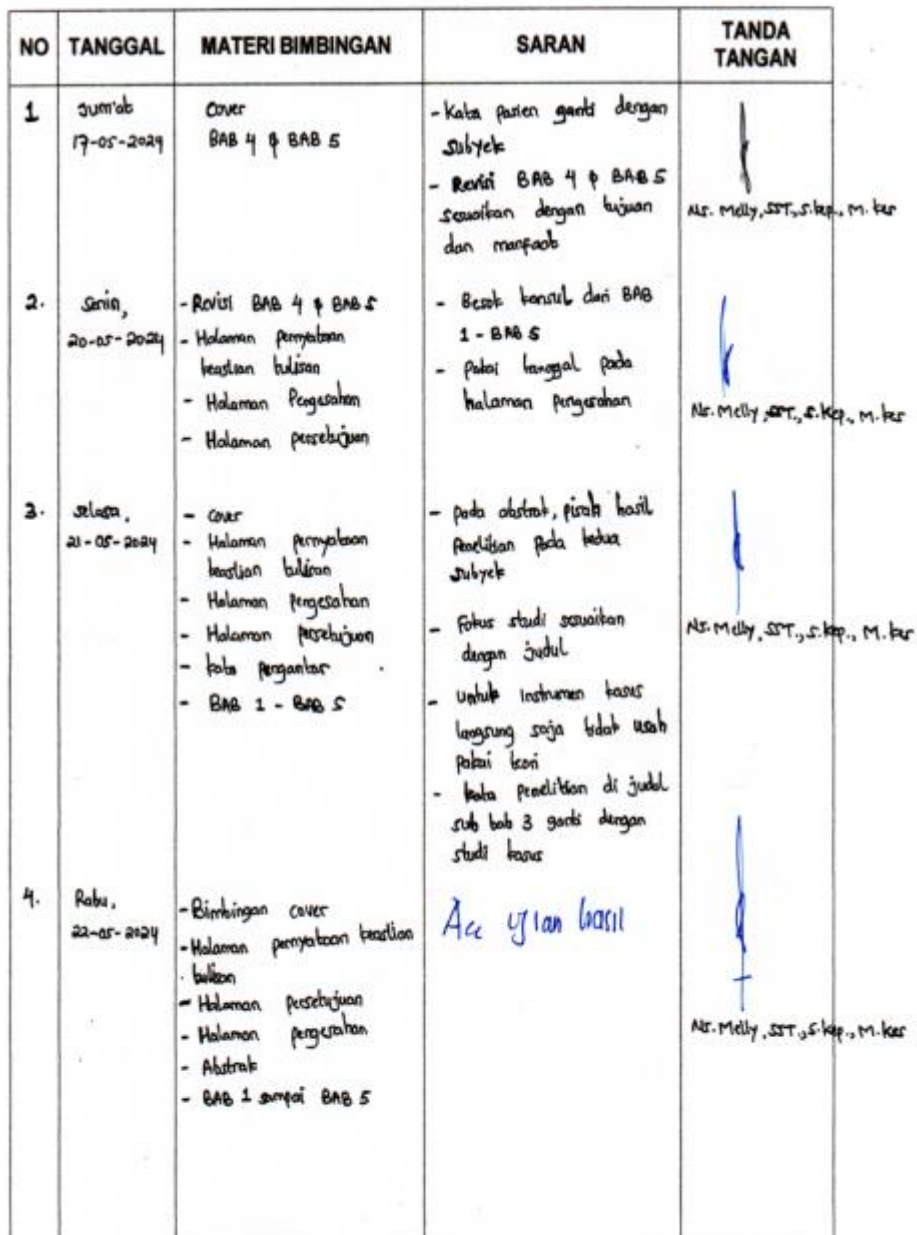 NO TANGGAL MATERI BIMBINGAN SARAN TANDA TANGAN
1 Jum'at
17-05-2024
Cover
BAB 4 & BAB 5
- Kata pasien ganti dengan
Subyek
- Revisi BAB 4 & BAB 5
sesuaikan dengan tujuan
dan manfaat
Ns. Melly, SST., S.kep., M. kes
2. Senin,
20-05-2024
- Revisi BAB 4 & BAB 5
- Halaman pernyataan
keaslian tulisan
- Halaman Pengesahan
- Halaman persetujuan
- Besok konsul dari BAB
1 - BAB 5
- Pakai tanggal pada
halaman pengesahan
Ns. Melly, SST., S.Kep., M. kes
3. Selasa,
21-05-2024
- Cover
- Halaman pernyataan
keaslian tulisan
- Halaman Pengesahan
- Halaman persetujuan
- kata pengantar
- BAB 1 - BAB 5
- pada abstrak, pisah hasil
Penelitian pada kedua
Subyek
- Fokus studi sesuaikan
dengan judul
- untuk instrumen kasus
langsung saja tidak usah
pakai teori
- kata penelitian di judul
sub bab 3 ganti dengan
studi kasus
Ns. Melly, SST., S.kep., M. kes
4. Rabu,
22-05-2024
- Bimbingan cover
- Halaman pernyataan keaslian
tulisan
- Halaman persetujuan
- Halaman pengesahan
- Abstrak
- BAB 1 sampai BAB 5
Acc ujian hasil
Ns. Melly, SST., S.kep., M. kes